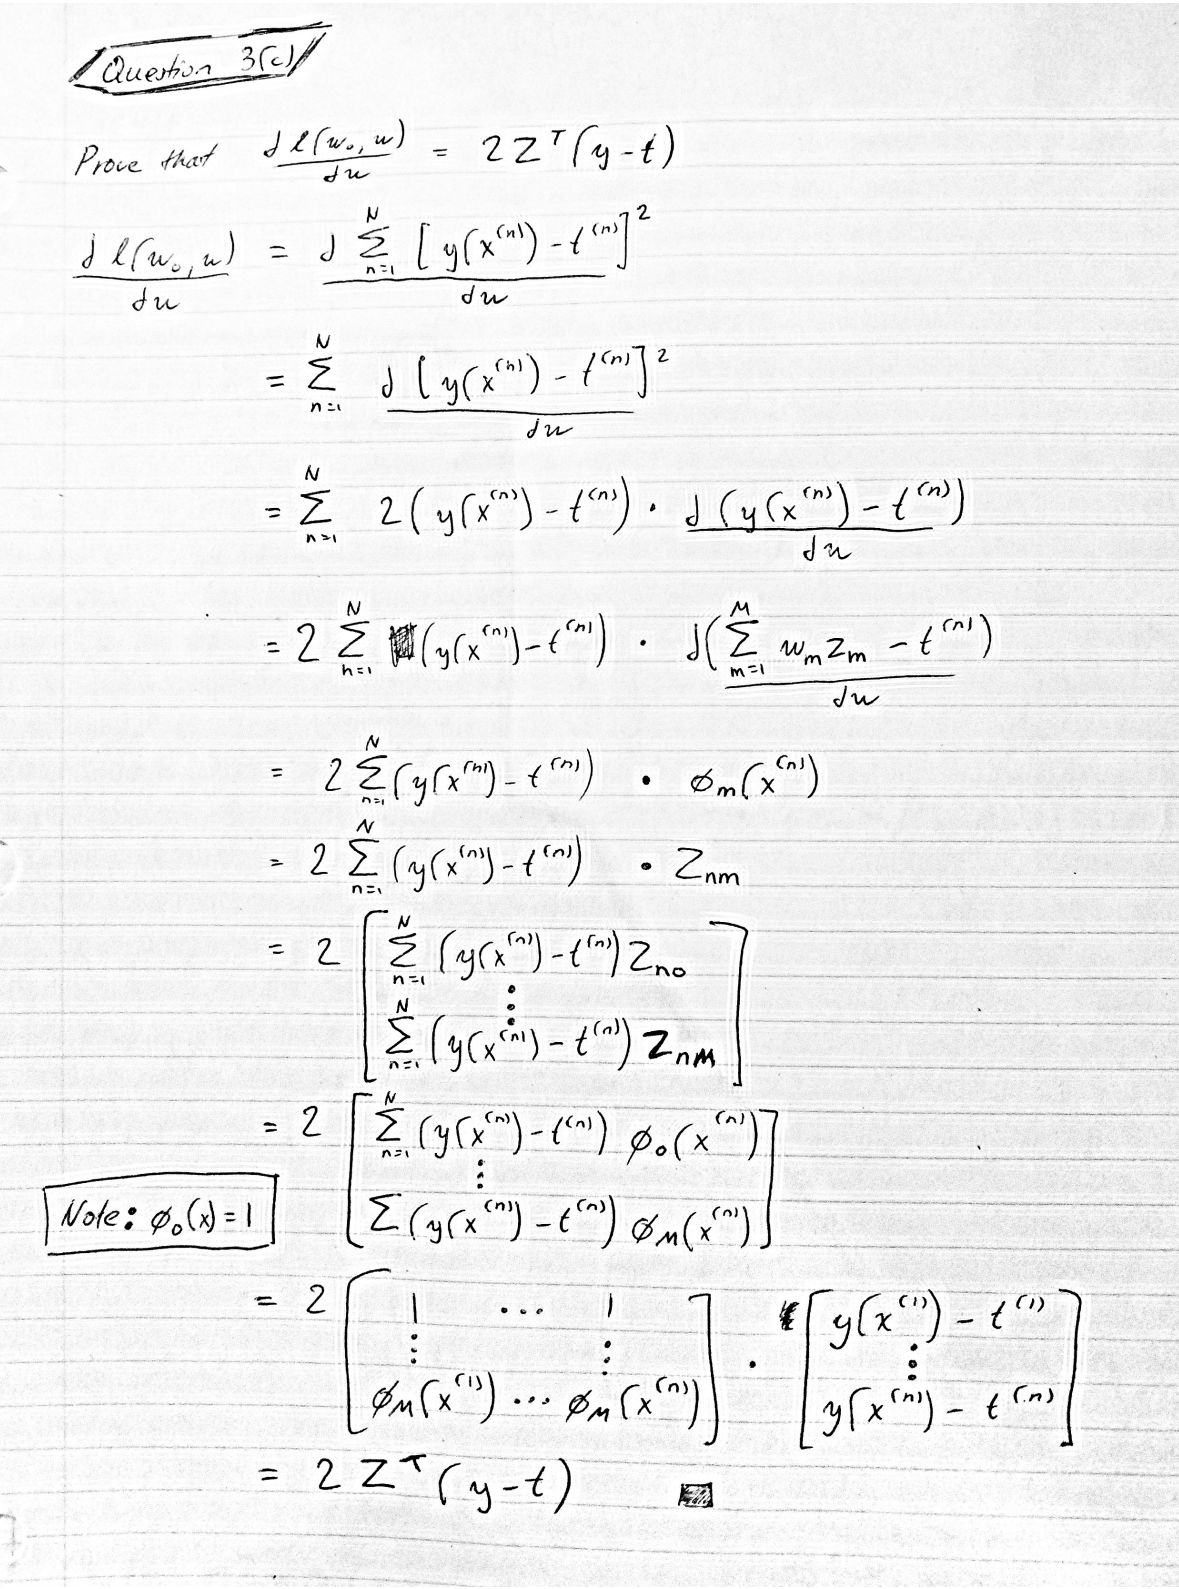 Question 3(c)
Prove that d l(w₀, w) / dw = 2 Z^T (y - t)
d l(w₀, w) / dw = d ∑_{n=1}^{N} [y(x^(n)) - t^(n)]² / dw
= ∑_{n=1}^{N} d [y(x^(n)) - t^(n)]² / dw
= ∑_{n=1}^{N} 2 (y(x^(n)) - t^(n)) · d (y(x^(n)) - t^(n)) / dw
= 2 ∑_{n=1}^{N} (y(x^(n)) - t^(n)) · d(∑_{m=1}^{M} w_m z_m - t^(n)) / dw
= 2 ∑_{n=1}^{N} (y(x^(n)) - t^(n)) · ø_m(x^(n))
= 2 ∑_{n=1}^{N} (y(x^(n)) - t^(n)) · Z_nm
= 2 [ ∑_{n=1}^{N} (y(x^(n)) - t^(n)) Z_n0
⋮
∑_{n=1}^{N} (y(x^(n)) - t^(n)) Z_nM ]
= 2 [ ∑_{n=1}^{N} (y(x^(n)) - t^(n)) ø₀(x^(n))
⋮
∑ (y(x^(n)) - t^(n)) ø_M(x^(n)) ]
Note: ø₀(x) = 1
= 2 [ 1 ... 1 ] · [ y(x^(1)) - t^(1) ]
⋮ ⋮ ⋮
ø_M(x^(1)) ... ø_M(x^(n)) y(x^(n)) - t^(n)
= 2 Z^T (y - t)